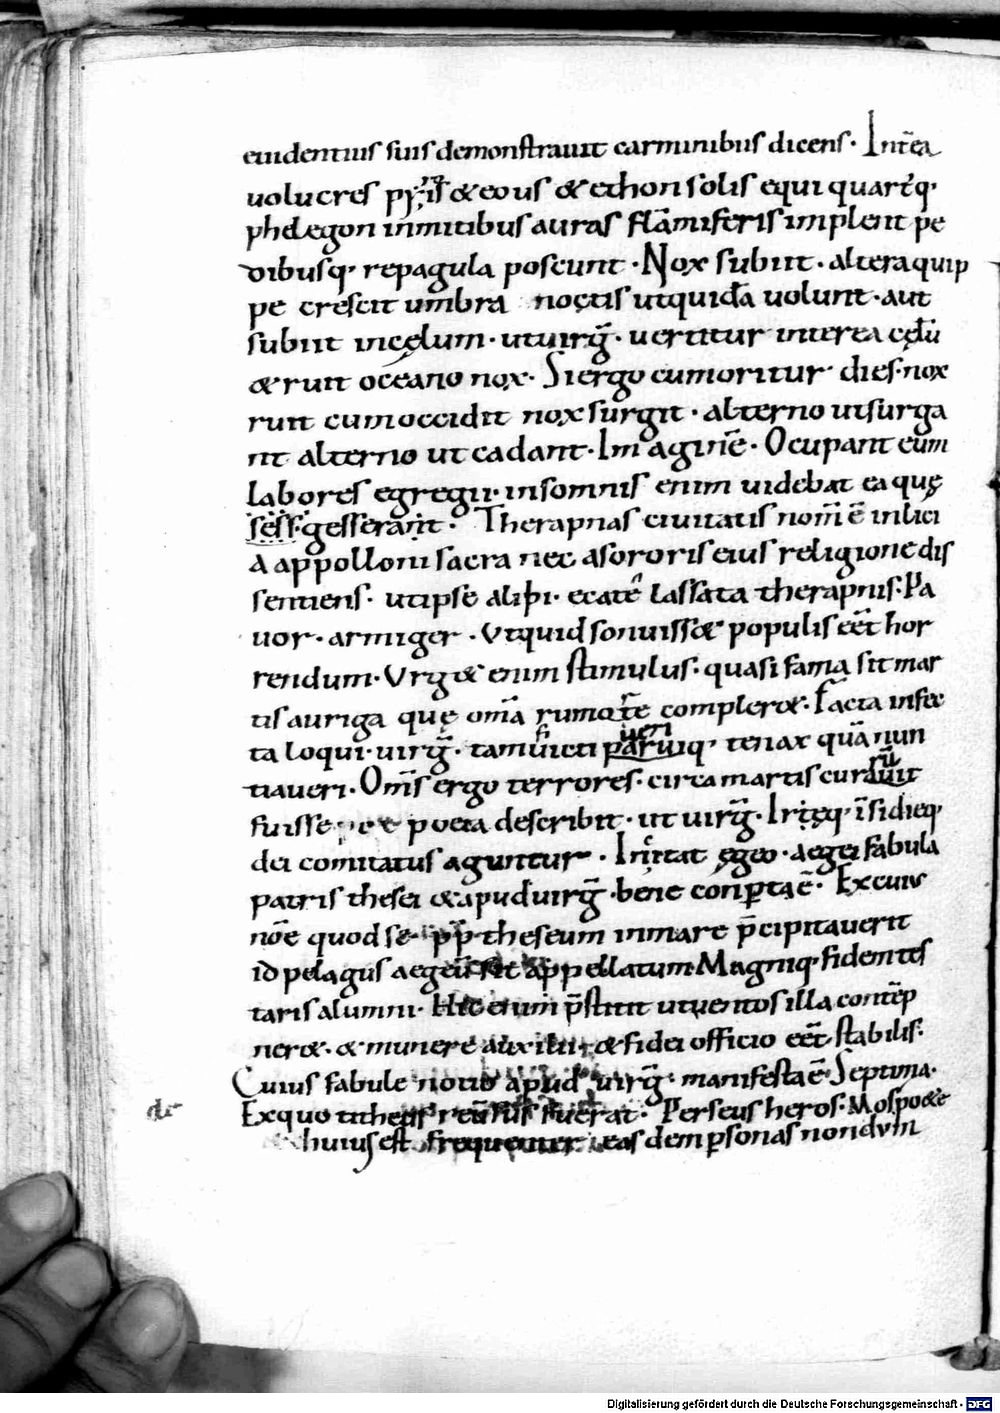 euidentius suis demonstrauit carminibus dicens · Int̄ea
uolucres &eous &ethon solis equi quart᷒q·
phlegon inmitibus auras flāmiferis implent pe
dibusq· repagula poscunt · Nox subiit · altera quip
pe crescit umbra noctis utquidā uolunt · aut
subiit incęlum · utuirḡ · uertitur interea cęlū
&ruit oceano nox · Siergo cumoritur dies · nox
ruit cumoccidit nox surgit · alterno utsurga
nt alterno ut cadant · Imaginē · Ocupant eum
labores egregii · insomnis enim uidebat ea quę
sess·gesserant · Therapnas ciuitatis nom̄ ē inlici
a appolloni sacra nec asororis eius religione dis
sentiens · utipse alibi · ecatē lassata therapnis · Pa
uor · armiger · Utquid sonuiss& populis eēt hor
rendum · Urg& enim stimulus · quasi fama sit mar
tis auriga quę om̄a rumore compler& · Facta infec
ta loqui · uirḡ · tamficti prauiq· tenax quā nun
tiaueri · Om̄s ergo terrores · circa martis currū
fuisse poeta describit · ut uirḡ · Iręq· īsidieq·
dei comitatus aguntur · Irritat ęgeo · aegei fabula
patris thesei &apuduirḡ · bene conꝑta ē · Excuius
nōe quod se theseum inmare p̄cipitauerit
id pelagus aegeū sit appellatum · Magniq· fidem tes
taris alumni · Hic enim p̄stitit utuentos illa contēp
ner& · &munere auxilii · &fidei officio eēt stabilis ·
Cuius fabule notio apud uirḡ · manifesta ē Septima ·
Exquo fuerat · Perseus heros · Mos po&e
huius est frequenter easdem ꝑsonas nondum
Digitalisierung gefördert durch die Deutsche Forschungsgemeinschaft - DFG